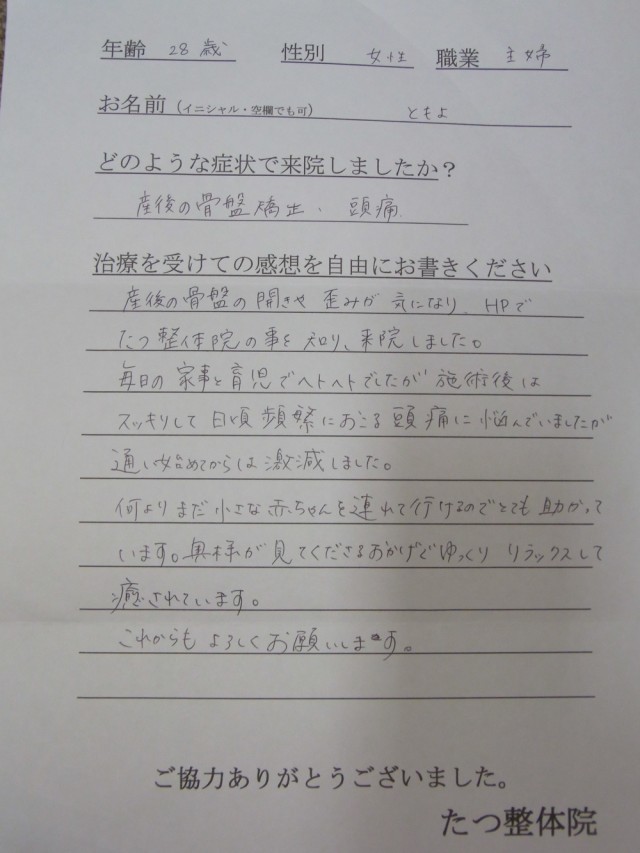 年齢 28歳 性別 女性 職業 主婦
お名前(イニシャル・空欄でも可) ともよ
どのような症状で来院しましたか?
産後の骨盤矯正、頭痛
治療を受けての感想を自由にお書きください
産後の骨盤の開きや歪みが気になり、HPで
たつ整体院の事を知り、来院しました。
毎日の家事と育児でヘトヘトでしたが施術後は
スッキリして日頃頻繁におこる頭痛に悩んでいましたが
通い始めてからは激減しました。
何よりまだ小さな赤ちゃんを連れて行けるのでとても助かって
います。奥様が見てくださるおかげでゆっくりリラックスして
癒されています。
これからもよろしくお願いします。
ご協力ありがとうございました。
たつ整体院